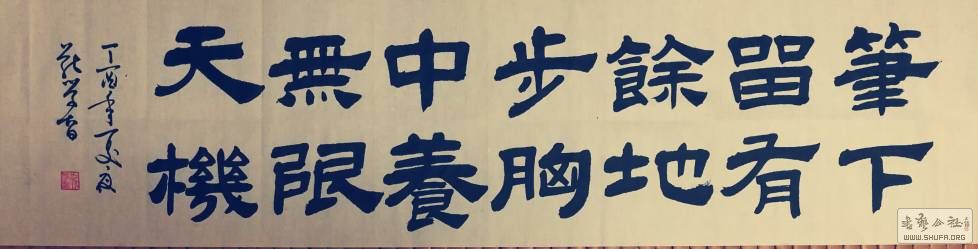 筆下
留有
餘地
步胸
中養
無限
天機
丁酉年夏夜
书艺公社
WWW.SHUFA.ORG